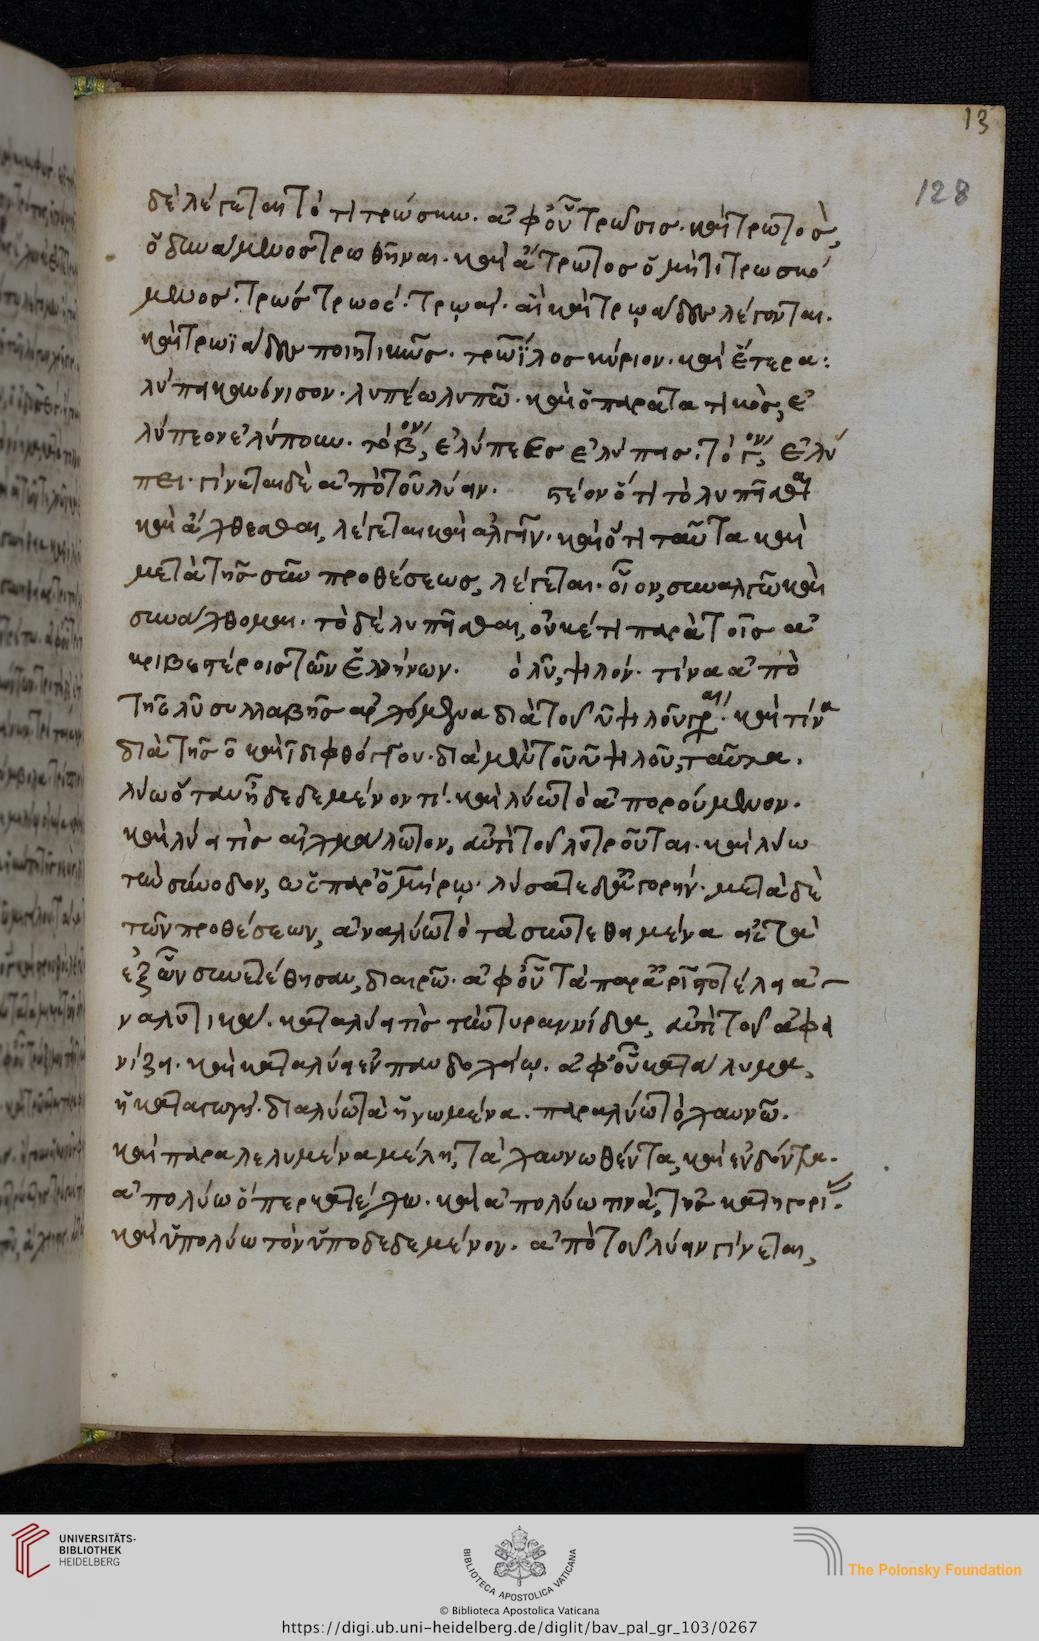 13
128
δὲ λέγεται τὸ τιτρώσκω. ἀφ' οὗ τρῶσις. καὶ τρωτὸς,
ὁ δυνάμενος τρωθῆναι. καὶ ἄτρωτος ὁ μὴ τιτρωσκό
μενος. τρώς τρωός. τρῳαί. αἳ καὶ τρῳάδες λέγονται.
καὶ τρωϊάδες ποιητικῶς. τρωΐλος κύριον. καὶ ἕτερα:
λύπη κανόνισον. λυπέω λυπῶ. καὶ ὁ παρατατικὸς, ἐ
λύπεον ἐλύπουν. τὸ βον, ἐλύπεες ἐλύπεις. τὸ γον, ἐλύ
πει. γίνεται δὲ ἀπὸ τοῦ λύειν. στέον ὅτι τὸ λυπεῖσθαι
καὶ ἄχθεσθαι, λέγεται καὶ ἀλγεῖν. καὶ ὅτι ταῦτα καὶ
μετὰ τῆς σὺν προθέσεως, λέγεται. οἷον, συναλγῶ καὶ
συνάχθομαι. τὸ δὲ λυπεῖσθαι, οὐκέτι παρὰ τοῖς ἀ
κριβεστέροις τῶν ἑλλήνων. ὁ λῦ, ψιλόν. τίνα ἀπὸ
τῆς λῦ συλλαβῆς ἀρχόμενα διὰ τοῦ ῦ ψιλοῦ γρ. καὶ τίνα
διὰ τῆς οῖ καὶ διφθόγγου. διὰ μὲν τοῦ ῦ ψιλοῦ, ταῦτα.
λύω ὅταν ᾖ δεδεμένον τί. καὶ λύω τὸ ἀπορούμενον.
καὶ λύει τὶς αἰχμάλωτον, ἀντὶ τοῦ λυτροῦται. καὶ λύω
τὴν σύνοδον, ὡς παρ' ὁμήρῳ. λῦσαν δ' ἀγορήν. μετὰ δὲ
τῶν προθέσεων, ἀναλύω τὸ τὰ συντεθημένα εἰς τὰ
ἐξ ὧν συνετέθησαν, διαιρῶ. ἀφ' οὗ τὰ παρ' ἀριστοτέλη ἀ-
ναλυτικά. καταλύει τὶς τὴν τυραννίδα, ἀντὶ τοῦ ἀφα
νίζει. καὶ καταλύει ἐν πανδοχείῳ. ἀφ' οὗ κατάλυμα,
ἢ καταγωγή. διαλύω τὰ ἡνωμένα. παραλύω τὸ χαυνῶ.
καὶ παραλελυμένα μέλη, τὰ χαυνωθέντα, καὶ ἐνδόντα.
ἀπολύω ὅπερ κατέχω. καὶ ἀπολύω τινὰ, τῆς κατηγορί.
καὶ ὑπολύω τὸν ὑποδεδεμένον. ἀπὸ τοῦ λύειν γίνεται,
UNIVERSITÄTS-
BIBLIOTHEK
HEIDELBERG
BIBLIOTECA APOSTOLICA VATICANA
The Polonsky Foundation
© Biblioteca Apostolica Vaticana
https://digi.ub.uni-heidelberg.de/diglit/bav_pal_gr_103/0267